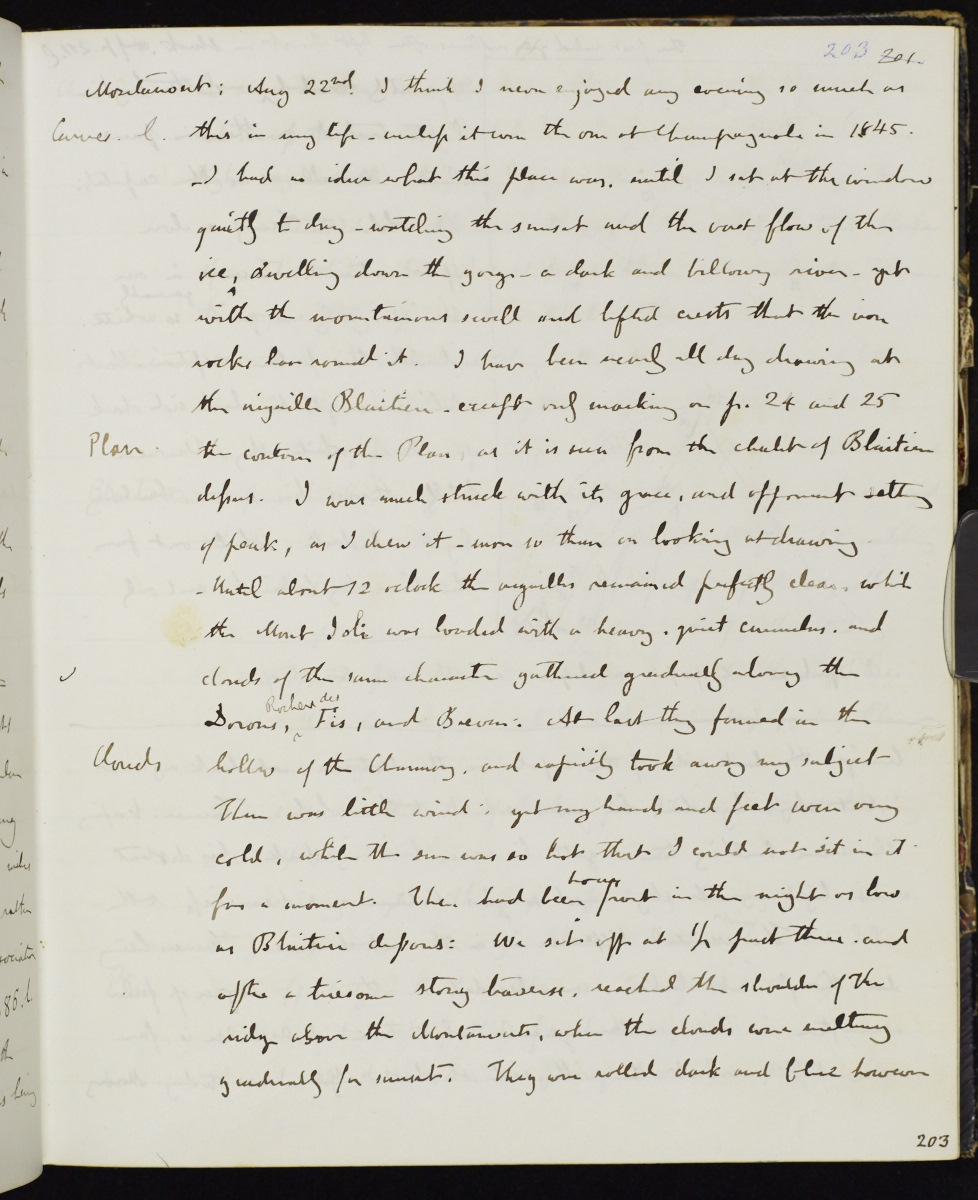 203 201.
Montanvert; Aug 22nd. I think I never enjoyed any evening so much as
Curves. l. this in my life - unless it were the one at Champagnole in 1845.
- I had no idea what this place was, until I sat at the window
quietly to day - watching the sunset and the vast flow of the
ice, swelling down the gorge - a dark and billowy river - yet
with the mountainous swell and lifted crests that the iron
rocks have round it. I have been nearly all day drawing at
the aiguille Blaitiere - except only marking on p. 24 and 25
Plan. the contour of the Plan, as it is seen from the chalet of Blaitiere
dessus. I was much struck with its grace, and apparent setting
of peak, as I drew it - more so than on looking at drawing.
- Until about 12 oclock the aiguilles remained perfectly clear, while
the Mont Joli was loaded with a heavy, quiet cumulus, and
clouds of the same character gathered gradually along the
Dorons, Rochers des Fis, and Breven: At last they formed in the
Clouds hollow of the Chamony, and rapidly took away my subject
There was little wind: yet my hands and feet were very
cold, while the sun was so hot that I could not sit in it
for a moment. There had been hoar frost in the night as low
as Blaitiere dessous: We set off at 1/2 past three. and
after a tiresome stony traverse, reached the shoulder of the
ridge above the Montanvert, when the clouds were melting
gradually for sunset. They were rolled dark and blue however
203